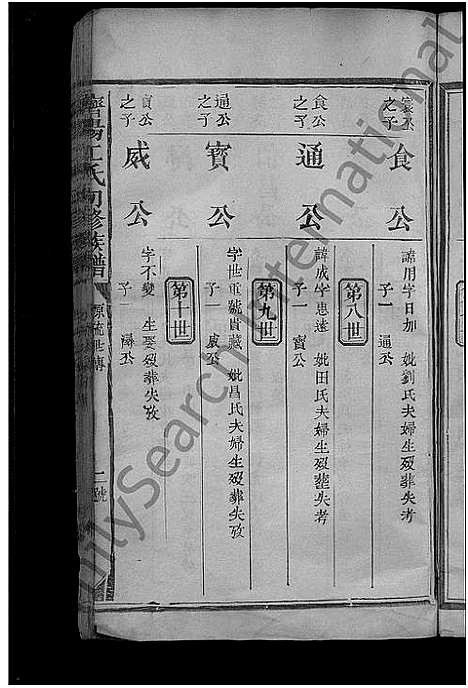 寔公之子
食公
諱用字日加 妣劉氏夫婦生歿葬失考
子一 通公
第八世
食公之子
通公
諱成字惠遠 妣田氏夫婦生歿葬失考
子一 寶公
第九世
通公之子
寶公
字世重號貴藏 妣昌氏夫婦生歿葬失攷
子一 威公
第十世
寶公之子
威公
字不變 生娶歿葬失攷
江氏初修族譜
源流世傳
二號